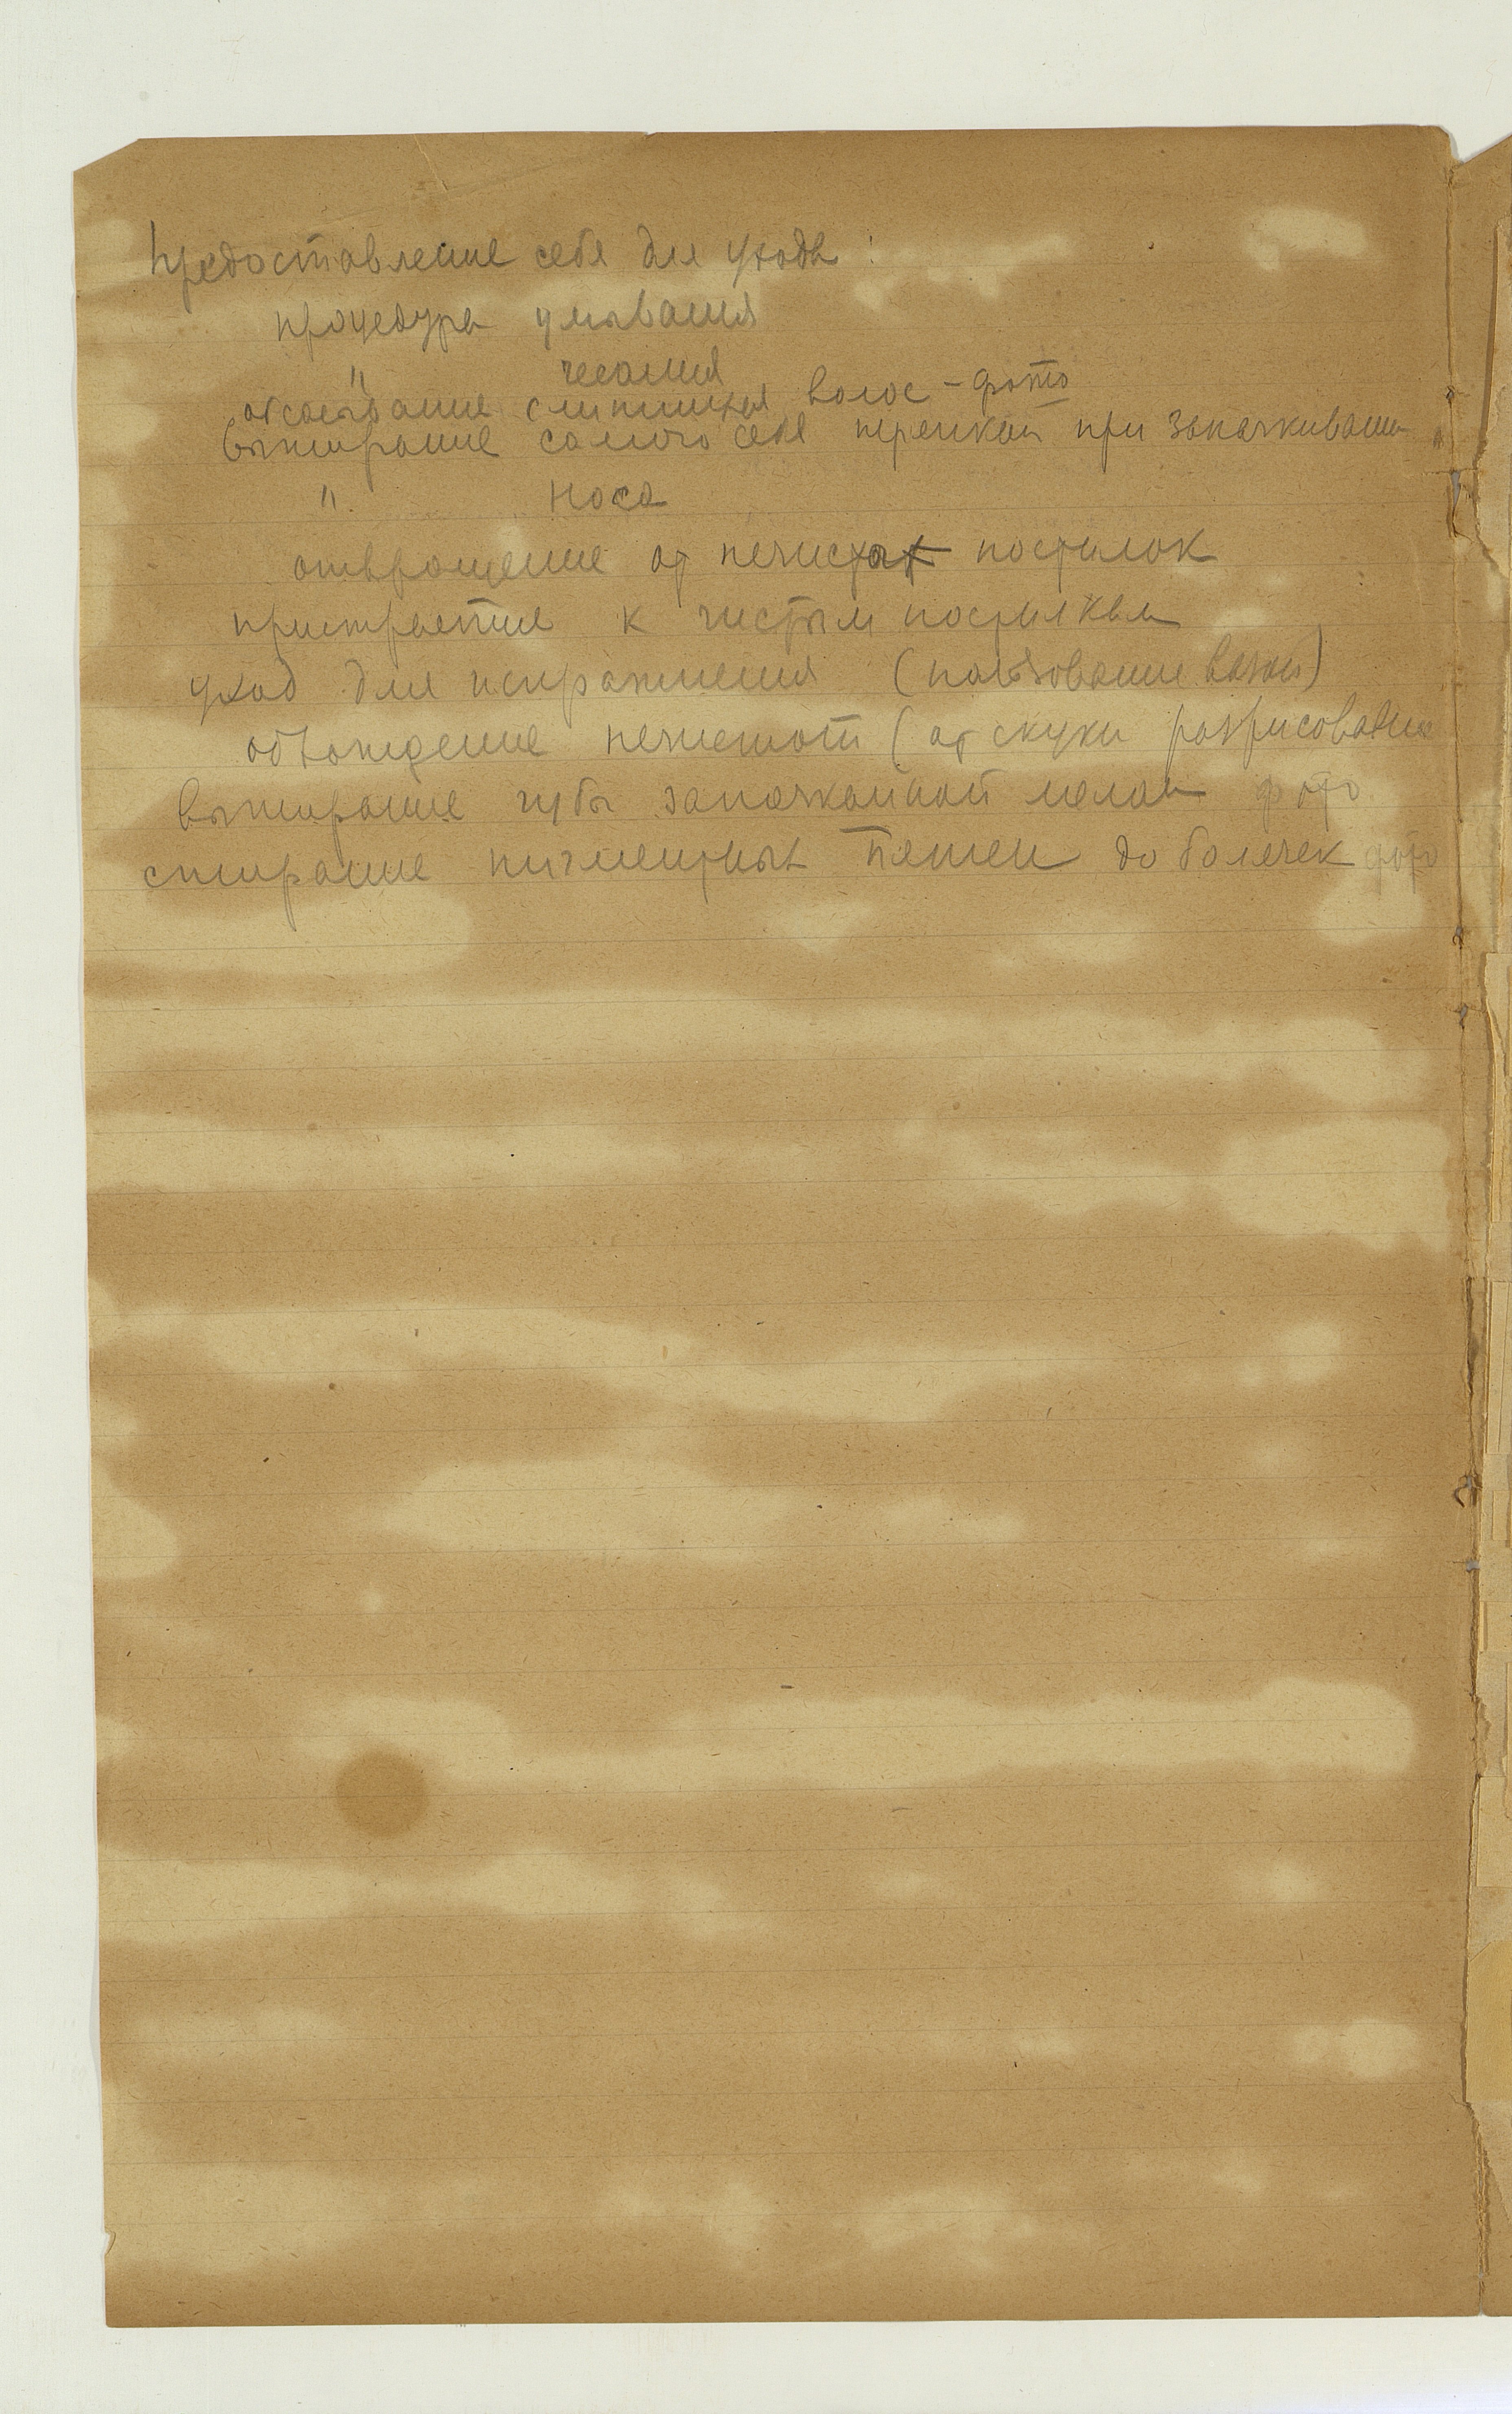 Предоставление себя для ухода:
процедура умывания
" чесания
обсасывание слипшихся волос – фото
вытирание самого себя тряпкой при запачкивании
" носа
отвращение от нечистых постилок
пристрастие к чистым постилкам
уход для испражнения (пользование вазой)
обхождение нечистот (от скуки разрисование
вытирание губы запачканной мелом фото
стирание пигментных пятен до болячек фото